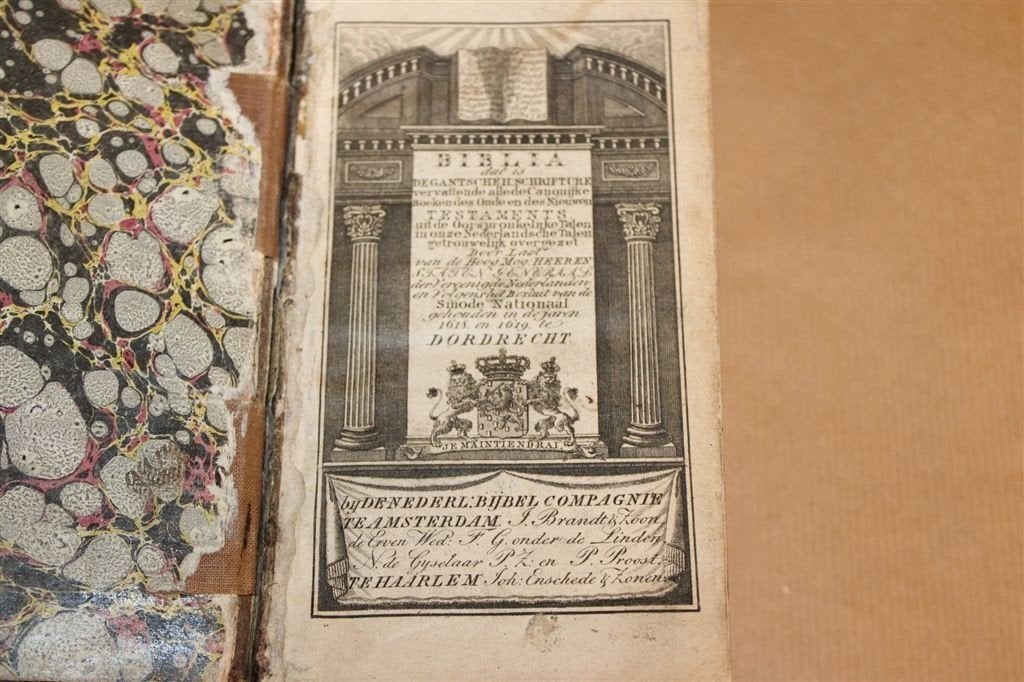 BIBLIA
dat is
DE GANTSCHE H. SCHRIFTURE
vervattende alle de Canonijke
Boeken des Oude en des Nieuwen
TESTAMENTS
uit de Oorspronkelijke Talen
in onze Nederlandsche Talen
getrouwelijk overgezet
Door Last
van de Hoog Mog: HEEREN
STATEN GENERAAL
der Vereenigde Nederlanden
en Volgens het Besluit van de
Sinode Nationaal
gehouden in de jaren
1618. en 1619. te
DORDRECHT.
JE MAINTIENDRAI
bij DE NEDERL: BIJBEL COMPAGNIE
TE AMSTERDAM, J. Brandt & Zoon,
de Erven Wed: F. G. onder de Linden
N. de Gyselaar P. Z: en P. Proost.
TE HAARLEM Joh: Enschede & Zonen